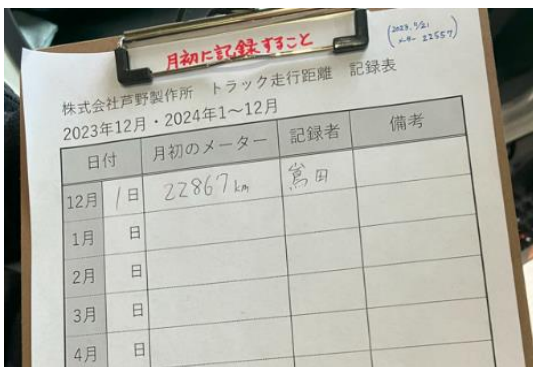 月初に記録すること
メーター 22557)
株式会社芦野製作所 トラック走行距離 記録表
2023年12月・2024年1～12月
日付 月初のメーター 記録者 備考
12月 1日 22867km 嶌田
1月 日
2月 日
3月 日
4月 日